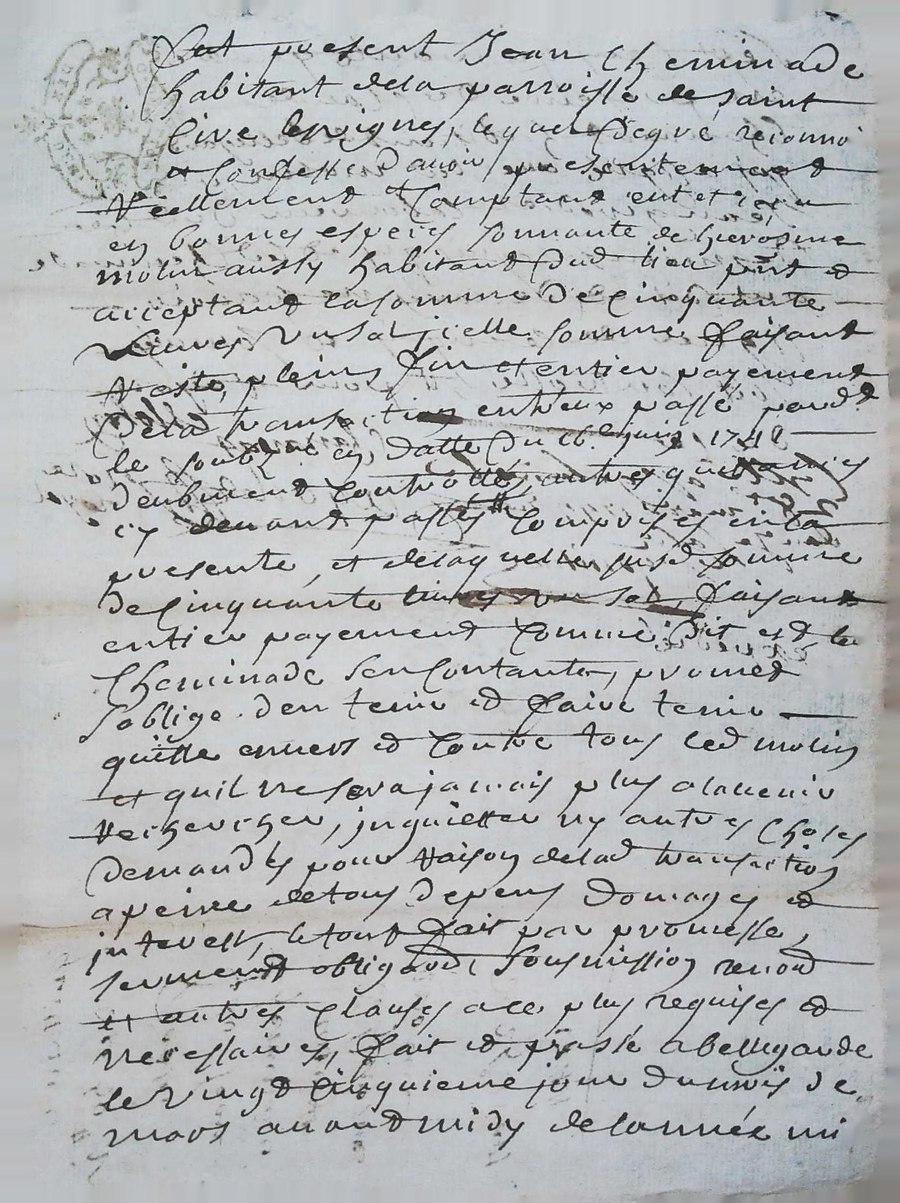 fut present Jean Cheminade
habitant dela parroisse de saint
Cire les vignes, lequel degré reconnoi
et confesse d'avoir presentement
Reellement et comptant eut et reçu
en bonnes especes sonnante de hierosme
molin aussy habitant dud lieu pnt et
acceptant la somme de cinquante
Livres un sol, jcelle somme faisant
Reste, plein, fin et entier payement
dela transaction entreux passé pard^t
le soubz^né en datte du 16^e juin 1748
deubment controllé, autres quittances
cy devant passés comprises en la
presente, et delaquelle susd somme
de cinquante livres un sol, faisant
entier payement comme dit est le
Cheminade sen contante, promet
soblige den tenir et faire tenir
quitte envers et contre tous led molin
et quil ne sera jamais plus alavenir
Rechercher, jnquietter ny autres choses
demandés pour Raison delad transaction
a peine de tous depens domages et
jnterest, le tout fait par promesse,
serment obligaon, soubmission renon^on
et autres clauses a ce plus requises et
necessaires, fait et passé a bellegarde
le vingt cinquieme jour du mois de
mars avant midy de lannée mi